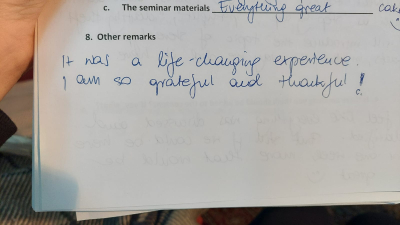 c. The seminar materials Everything great
8. Other remarks
It was a life-changing experience.
I am so grateful and thankful!